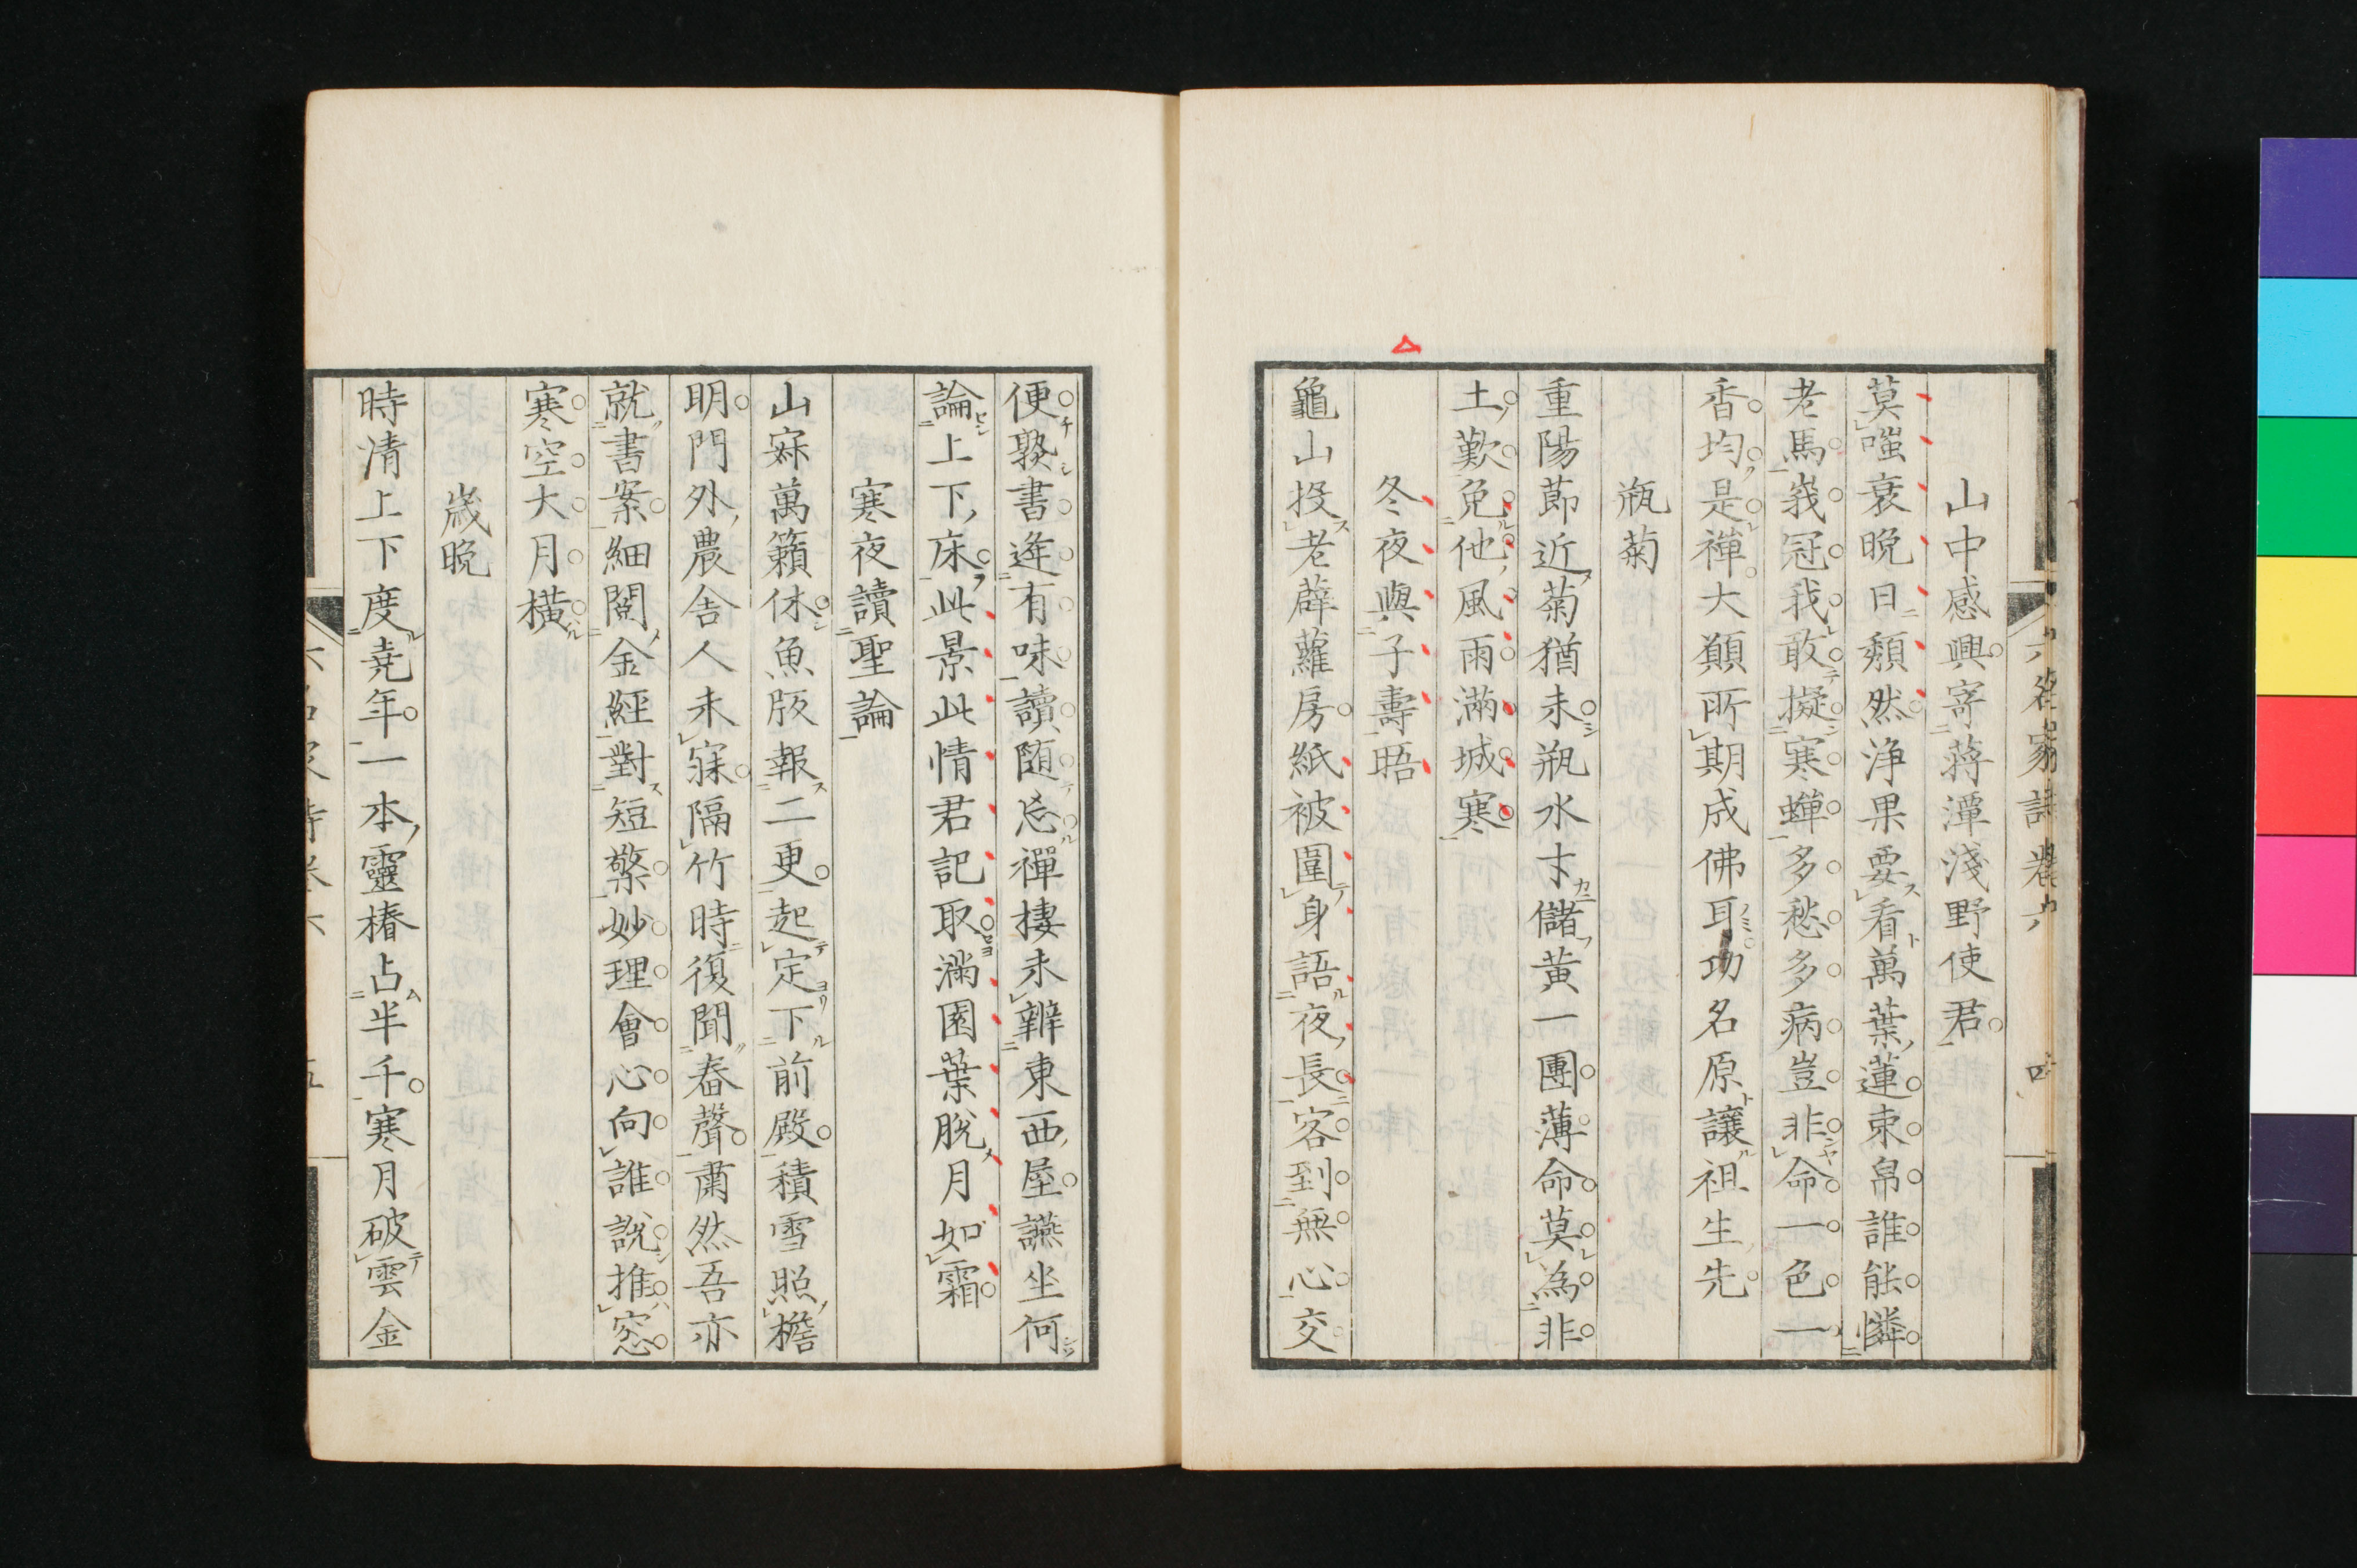 山中感興寄蒋潭淺野使君
莫嗤衰晩日頽然浄果要看萬葉蓮束帛誰能憐
老馬峩冠我敢擬寒蟬多愁多病豈非命一色一
香均是禪大願所期成佛耳功名原讓祖生先
瓶菊
重陽節近菊猶未瓶水才儲黄一團薄命莫為非
土歎免他風雨滿城寒
冬夜與子壽晤
龜山投老薜蘿房紙被圍身語夜長客到無心交
便熟書逢有味讀随忘禪棲未辨東西屋讌坐何
論上下床此景此情君記取滿園葉脫月如霜
寒夜讀聖論
山寂萬籟休魚版報二更起定下前殿積雪照檐
明門外農舎人未寐隔竹時復聞舂聲肅然吾亦
就書案細閲金經對短檠妙理會心向誰説推窓
寒空大月横
歳晩
時清上下度堯年一本靈椿占半千寒月破雲金